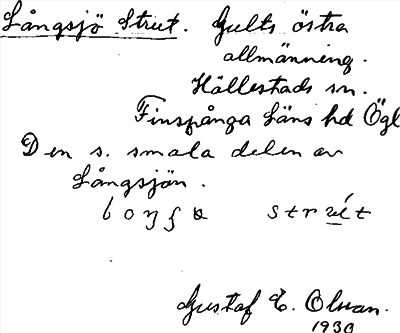 Långsjö Strut. Gults östra
allmänning.
Hällestads sn.
Finspånga läns hd Ögl
Den s. smala delen av
Långsjön.
strút
Gustaf E. Olsan.
1930